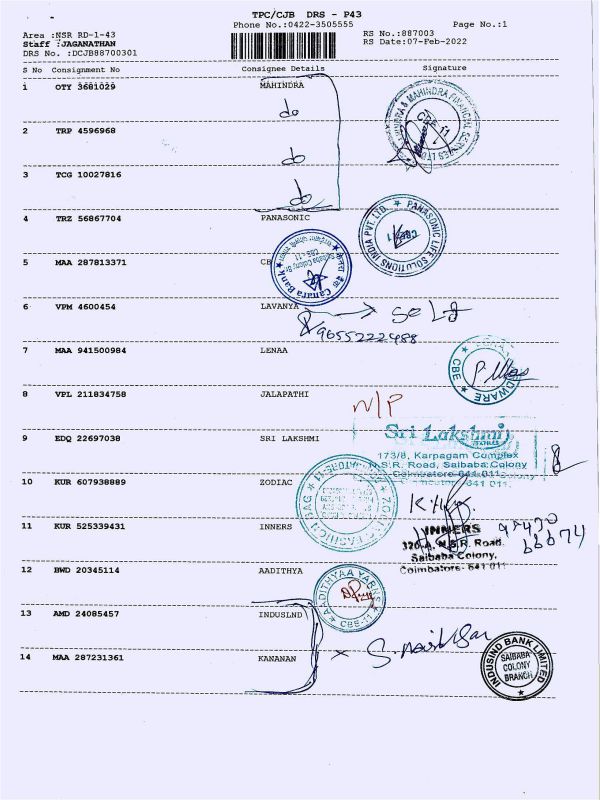 TPC/CJB DRS - P43
Phone No.:0422-3505555 Page No.:1
Area :NSR RD-1-43 RS No.:887003
Staff :JAGANATHAN RS Date:07-Feb-2022
DRS No. :DCJB88700301
S No Consignment No Consignee Details Signature
1 OTY 3681029 MAHINDRA
do
MAHINDRA & MAHINDRA FINANCIAL SERVICES LTD
CBE-11
2 TRP 4596968
do
3 TCG 10027816
do
4 TRZ 56867704 PANASONIC
PANASONIC LIFE SOLUTIONS INDIA PVT. LTD.
5 MAA 287813371 CB
Canara Bank
Saibaba Colony Br
CBE-11
6 VPM 4600454 LAVANYA
Self
9655222488
7 MAA 941500984 LENAA
CBE
8 VPL 211834758 JALAPATHI
N/P
9 EDQ 22697038 SRI LAKSHMI
Sri Lakshmi
173/8, Karpagam Complex
N.S.R. Road, Saibaba Colony
Coimbatore-641 011.
10 KUR 607938889 ZODIAC
11 KUR 525339431 INNERS
INNERS
320-A, N.S.R. Road,
Saibaba Colony,
Coimbatore- 641 011
12 BWD 20345114 AADITHYA
CBE-11
13 AMD 24085457 INDUSLND
14 MAA 287231361 KANANAN
INDUSIND BANK LIMITED
SAIBABA
COLONY
BRANCH